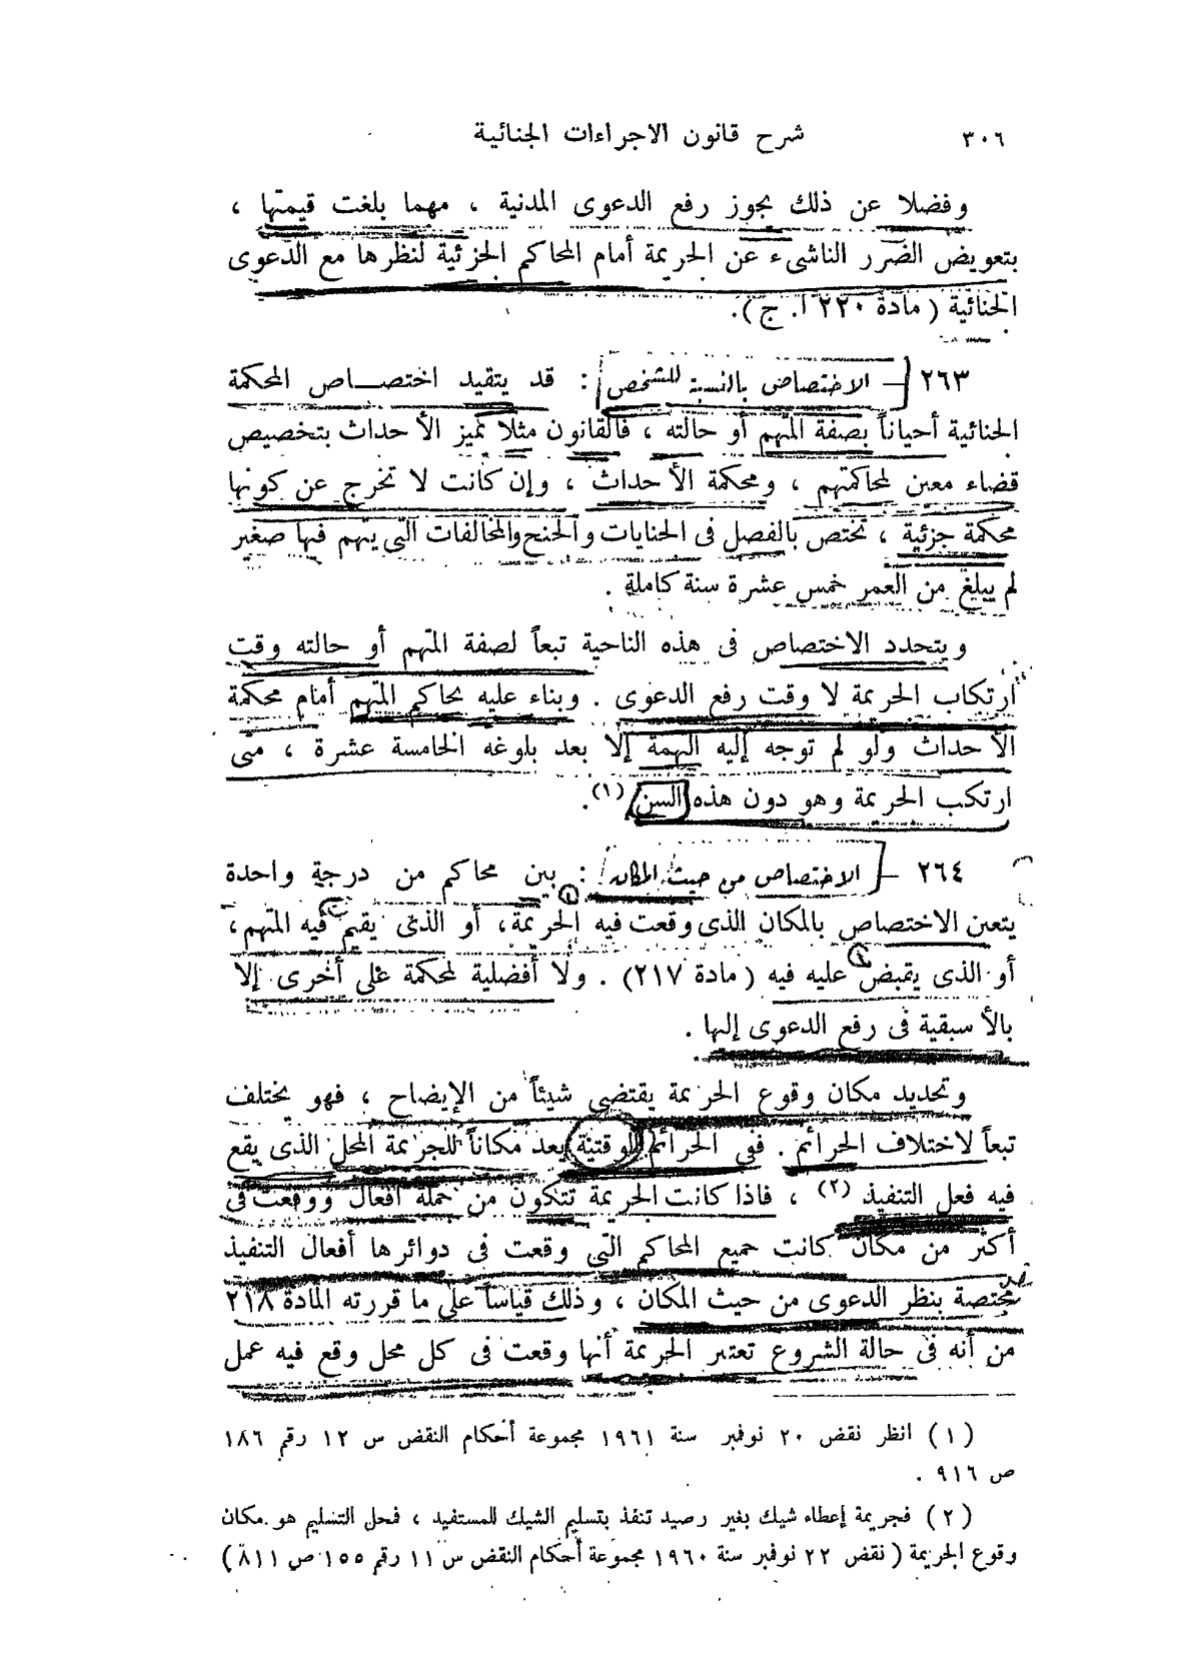 ٣٠٦ شرح قانون الاجراءات الجنائية
وفضلا عن ذلك يجوز رفع الدعوى المدنية ، مهما بلغت قيمتها ،
بتعويض الضرر الناشىء عن الجريمة أمام المحاكم الجزئية لنظرها مع الدعوى
الجنائية ( مادة ٢٢٠ ا. ج ).
٢٦٣ – الاختصاص بالنسبة للشخص : قد يتقيد اختصاص المحكمة
الجنائية أحياناً بصفة المتهم أو حالته ، فالقانون مثلا يميز الأحداث بتخصيص
قضاء معين لمحاكمتهم ، ومحكمة الأحداث ، وإن كانت لا تخرج عن كونها
محكمة جزئية ، تختص بالفصل فى الجنايات والجنح والمخالفات التى يتهم فيها صغير
لم يبلغ من العمر خمس عشرة سنة كاملة .
ويتحدد الاختصاص فى هذه الناحية تبعاً لصفة المتهم أو حالته وقت
ارتكاب الجريمة لا وقت رفع الدعوى . وبناء عليه يحاكم المتهم أمام محكمة
الأحداث ولو لم توجه إليه التهمة إلا بعد بلوغه الخامسة عشرة ، متى
ارتكب الجريمة وهو دون هذه السن (١).
٢٦٤ – الاختصاص من حيث المكان : بين محاكم من درجة واحدة
يتعين الاختصاص بالمكان الذى وقعت فيه الجريمة، أو الذى يقيم فيه المتهم،
أو الذى يقبض عليه فيه ( مادة ٢١٧) . ولا أفضلية لمحكمة على أخرى إلا
بالأسبقية فى رفع الدعوى إليها .
وتحديد مكان وقوع الجريمة يقتضى شيئاً من الإيضاح ، فهو يختلف
تبعاً لاختلاف الجرائم . ففى الجرائم الوقتية يعد مكاناً للجريمة المحل الذى يقع
فيه فعل التنفيذ (٢) ، فاذا كانت الجريمة تتكون من جملة أفعال ووقعت فى
أكثر من مكان كانت جميع المحاكم التى وقعت فى دوائرها أفعال التنفيذ
مختصة بنظر الدعوى من حيث المكان ، وذلك قياساً على ما قررته المادة ٢١٨
من أنه فى حالة الشروع تعتبر الجريمة أنها وقعت فى كل محل وقع فيه عمل
(١) انظر نقض ٢٠ نوفمبر سنة ١٩٦١ مجموعة أحكام النقض س ١٢ رقم ١٨٦
ص ٩١٦ .
(٢) فجريمة إعطاء شيك بغير رصيد تنفذ بتسليم الشيك للمستفيد ، فمحل التسليم هو مكان
وقوع الجريمة ( نقض ٢٢ نوفمبر سنة ١٩٦٠ مجموعة أحكام النقض س ١١ رقم ١٥٥ ص ٨١١ )